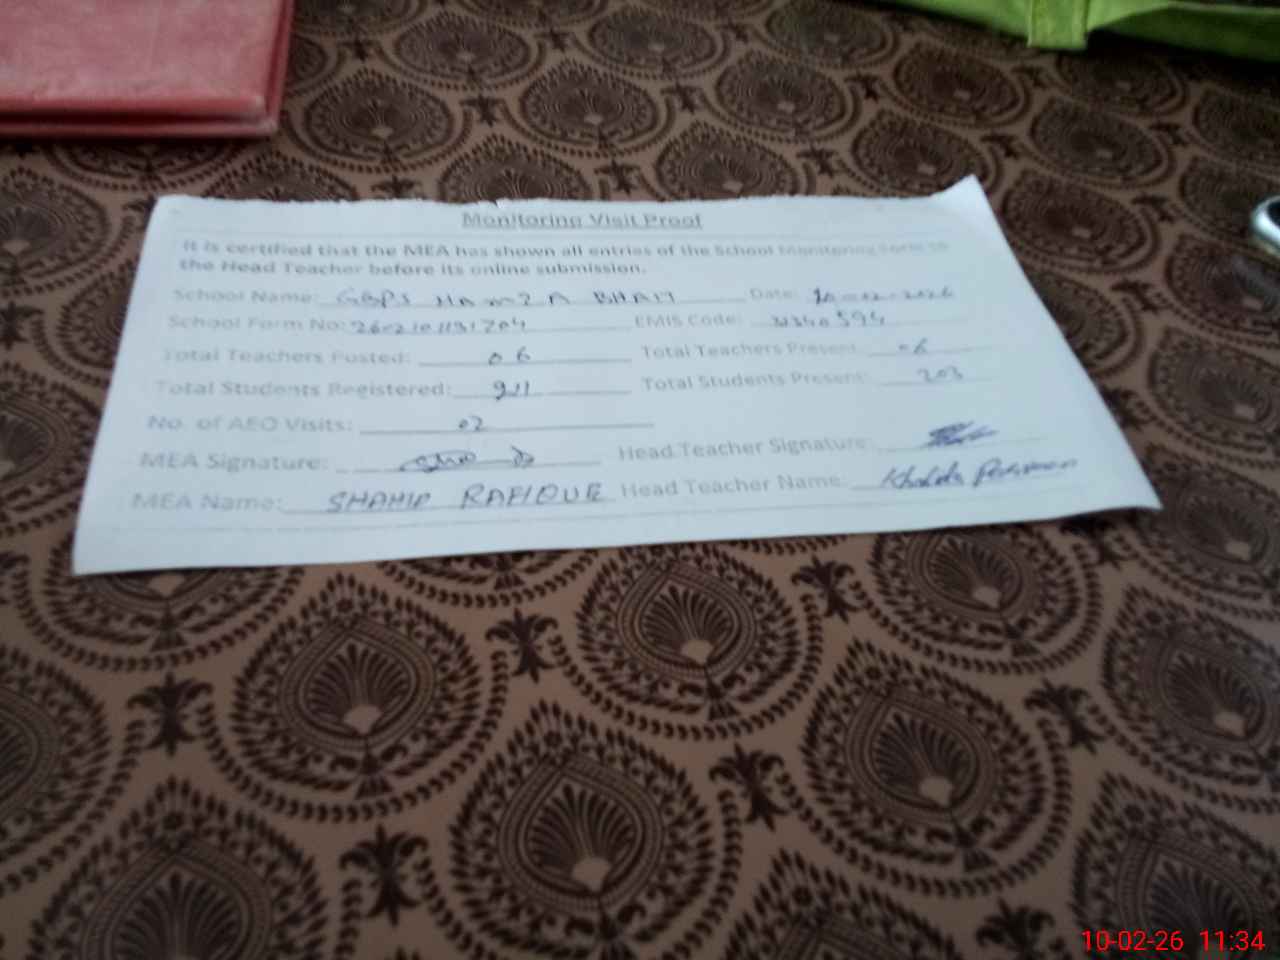 Monitoring Visit Proof
It is certified that the MEA has shown all entries of the School Monitoring Form to
the Head Teacher before its online submission.
School Name: GBPS HAMZA BHATT Date: 10-02-2026
School Form No: EMIS Code:
Total Teachers Posted: 06 Total Teachers Present: 06
Total Students Registered: Total Students Present: 203
No. of AEO Visits: 02
MEA Signature: Head Teacher Signature:
MEA Name: SHAHID RAFIQUE Head Teacher Name: Khalida Perveen
10-02-26 11:34